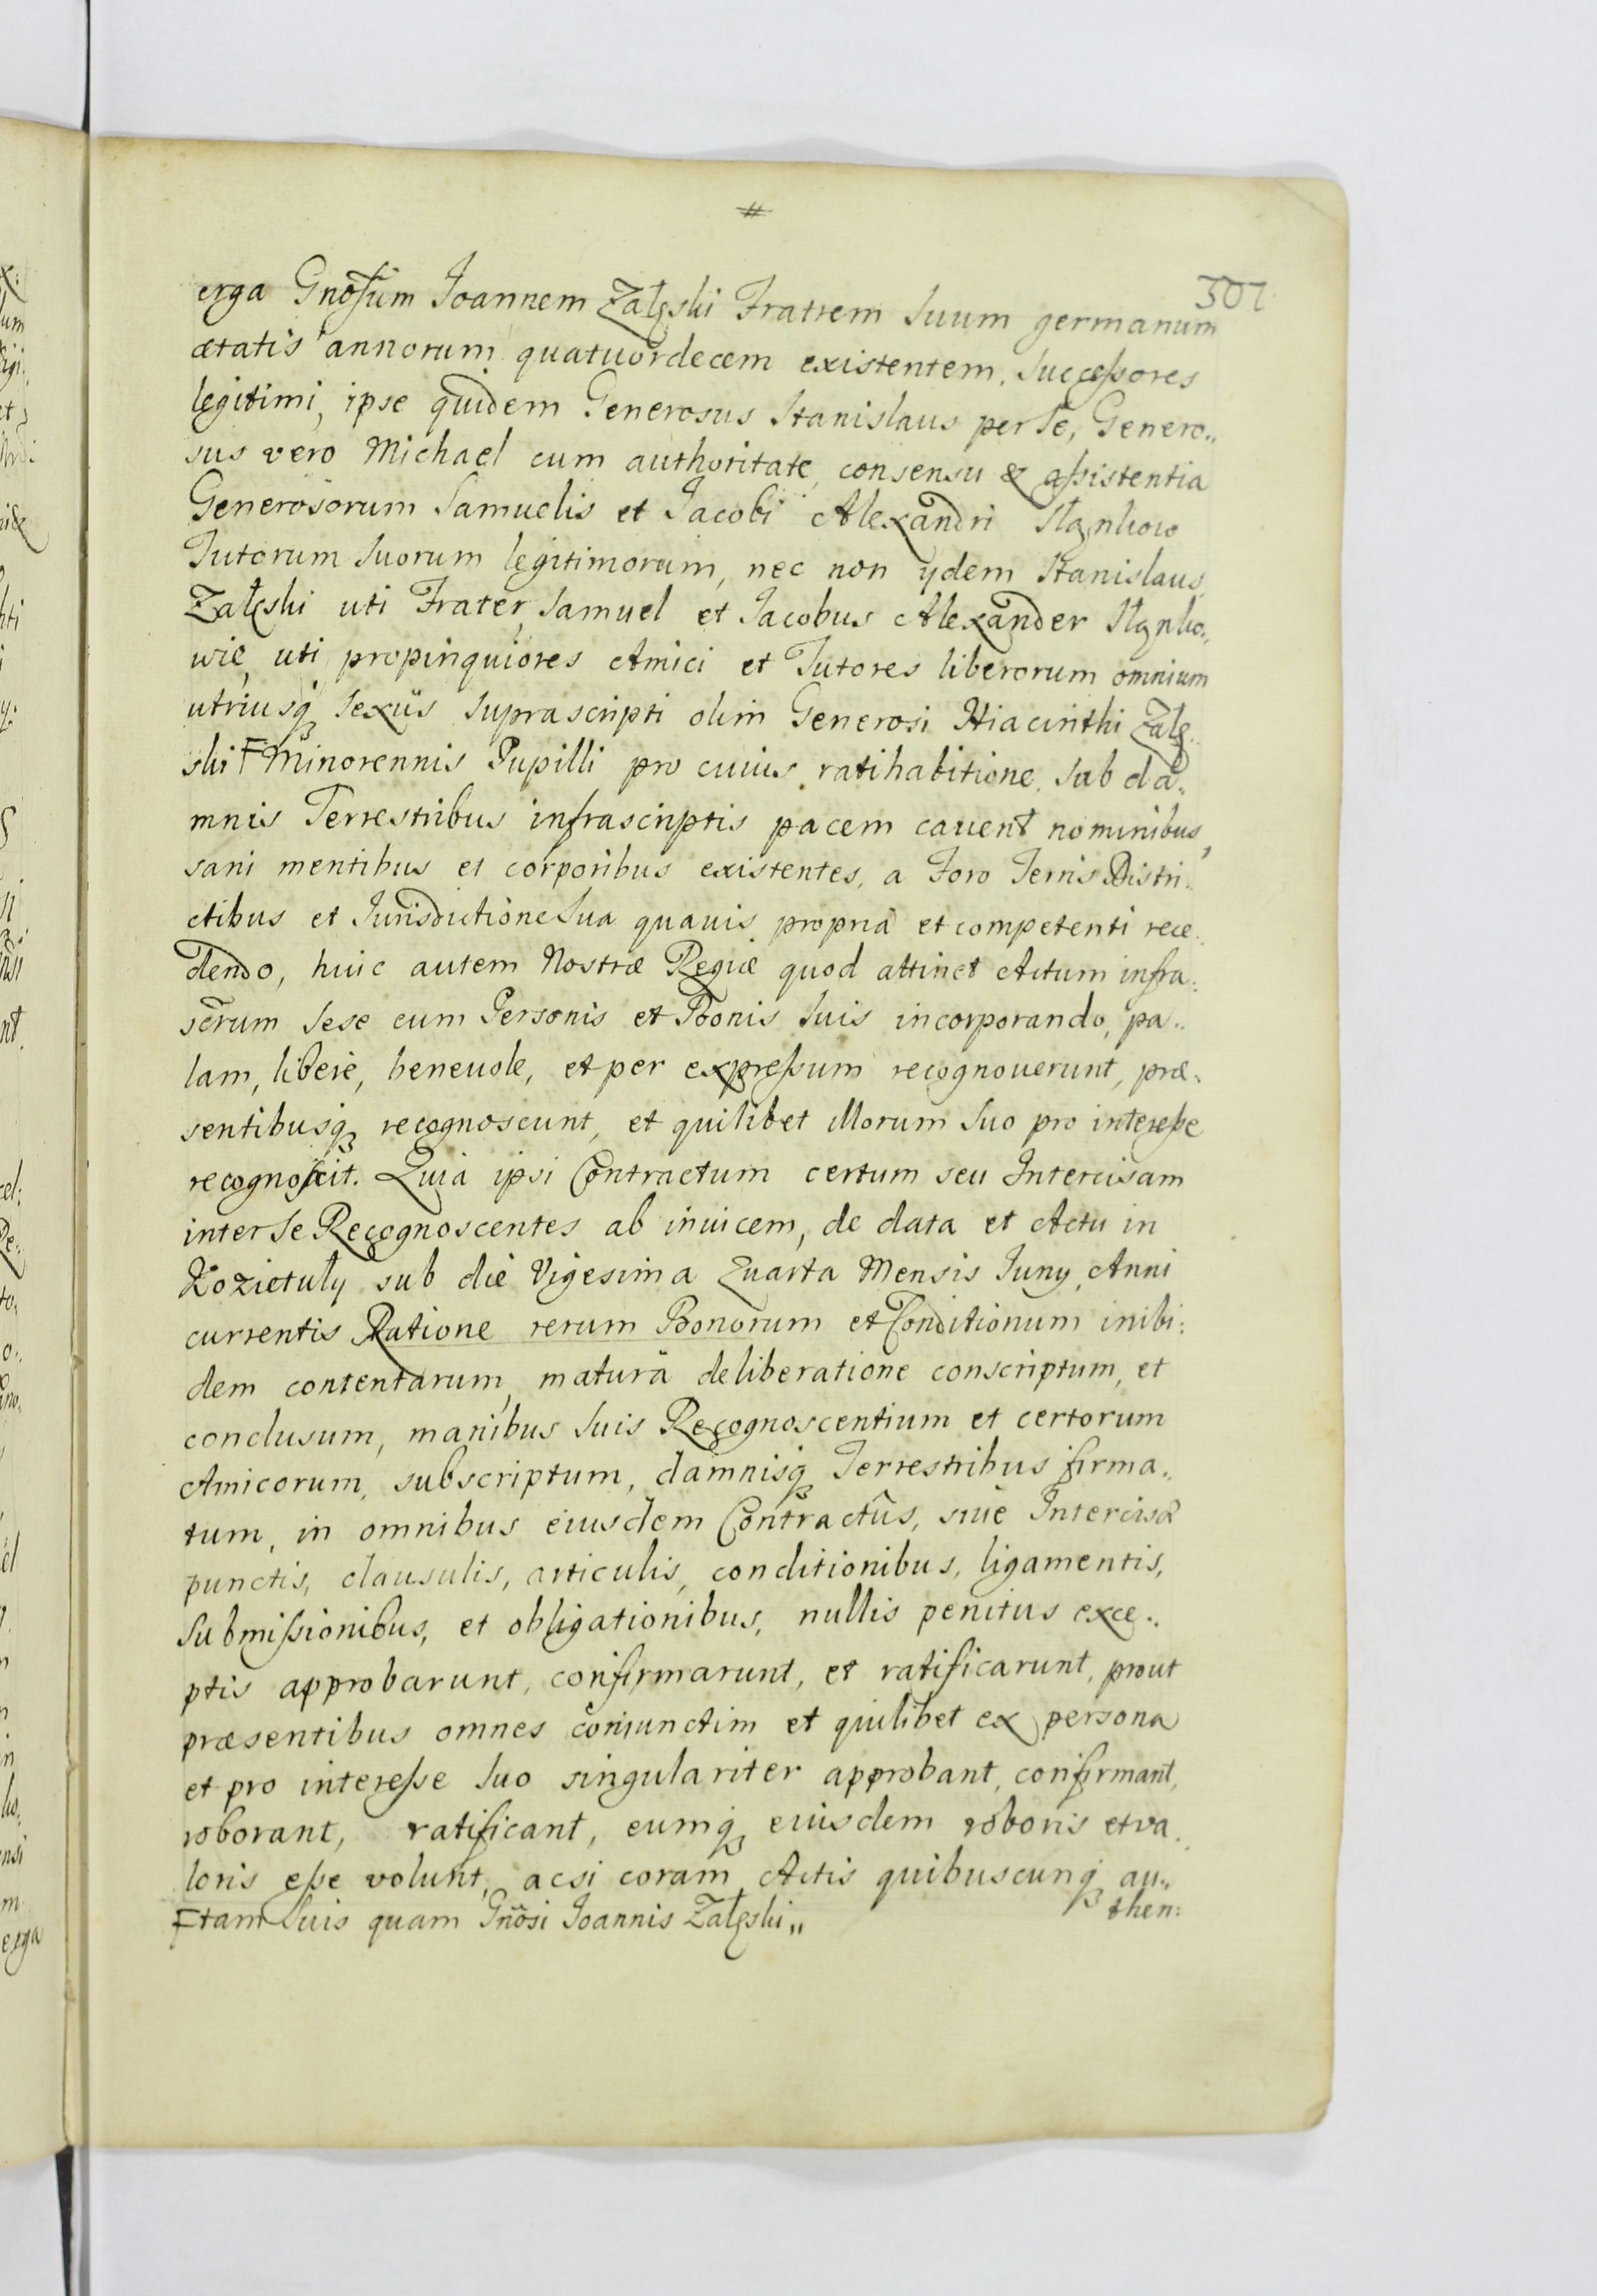 #
301
erga Gnosum Joannem Załęski Fratrem Suum germanum
ætatis annorum quatuordecem existentem, Successores
legitimi, ipse quidem Generosus Stanislaus per Se, Genero„
sus vero Michael cum authoritate, consensu & assistentia
Generosorum Samuelis et Jacobi Alexandri
Tutorum Suorum legitimorum, nec non ydem Stanislaus
Załęski uti Frater, Samuel et Jacobus Alexander
wie, uti propinquiores Amici et Tutores liberorum omnium
utriusq Sexûs Suprascripti olim Generosi Hiacinthi Załę„
ski Ƒ Minorennis Pupilli pro cuius ratihabitione, Sub da„
mnis Terrestribus infrascriptis pacem cavent nominibus,
sani mentibus et corporibus existentes, a Foro Terris Distri„
ctibus et Jurisdictione Sua quavis propriâ et competenti rece„
dendo, huic autem Nostræ Regiæ quod attinet Actum infra„
scrum Sese cum Personis et Bonis Suis incorporando, pa„
lam, libere, benevole, et per expressum recognoverunt, præ„
sentibusq recognoscunt, et quilibet illorum Suo pro interesse
recognoscit. Quia ipsi Contractum certum seu Intercisam
inter Se Recognoscentes ab invicem, de data et Actu in
Kozietuły sub die Vigesima Quarta Mensis Juny Anni
currentis Ratione rerum Bonorum et Conditionum inibi:
dem contentarum, maturâ deliberatione conscriptum, et
conclusum, manibus Suis Recognoscentium et certorum
Amicorum, subscriptum, damnisq Terrestribus firma„
tum, in omnibus eiusdem Contractûs, sive Intercisæ
punctis, clausulis, articulis, conditionibus, ligamentis,
Submissionibus, et obligationibus, nullis penitus exce„
ptis approbarunt, confirmarunt, et ratificarunt, prout
præsentibus omnes coniunctim et quilibet ex persona
et pro interesse Suo singulariter approbant, confirmant,
roborant, ratificant, eumq eiusdem roboris et va„
loris esse volunt, acsi coram Actis quibuscunq au„
then:
Ƒ tam Suis quam Gnosi Joannis Załęski„